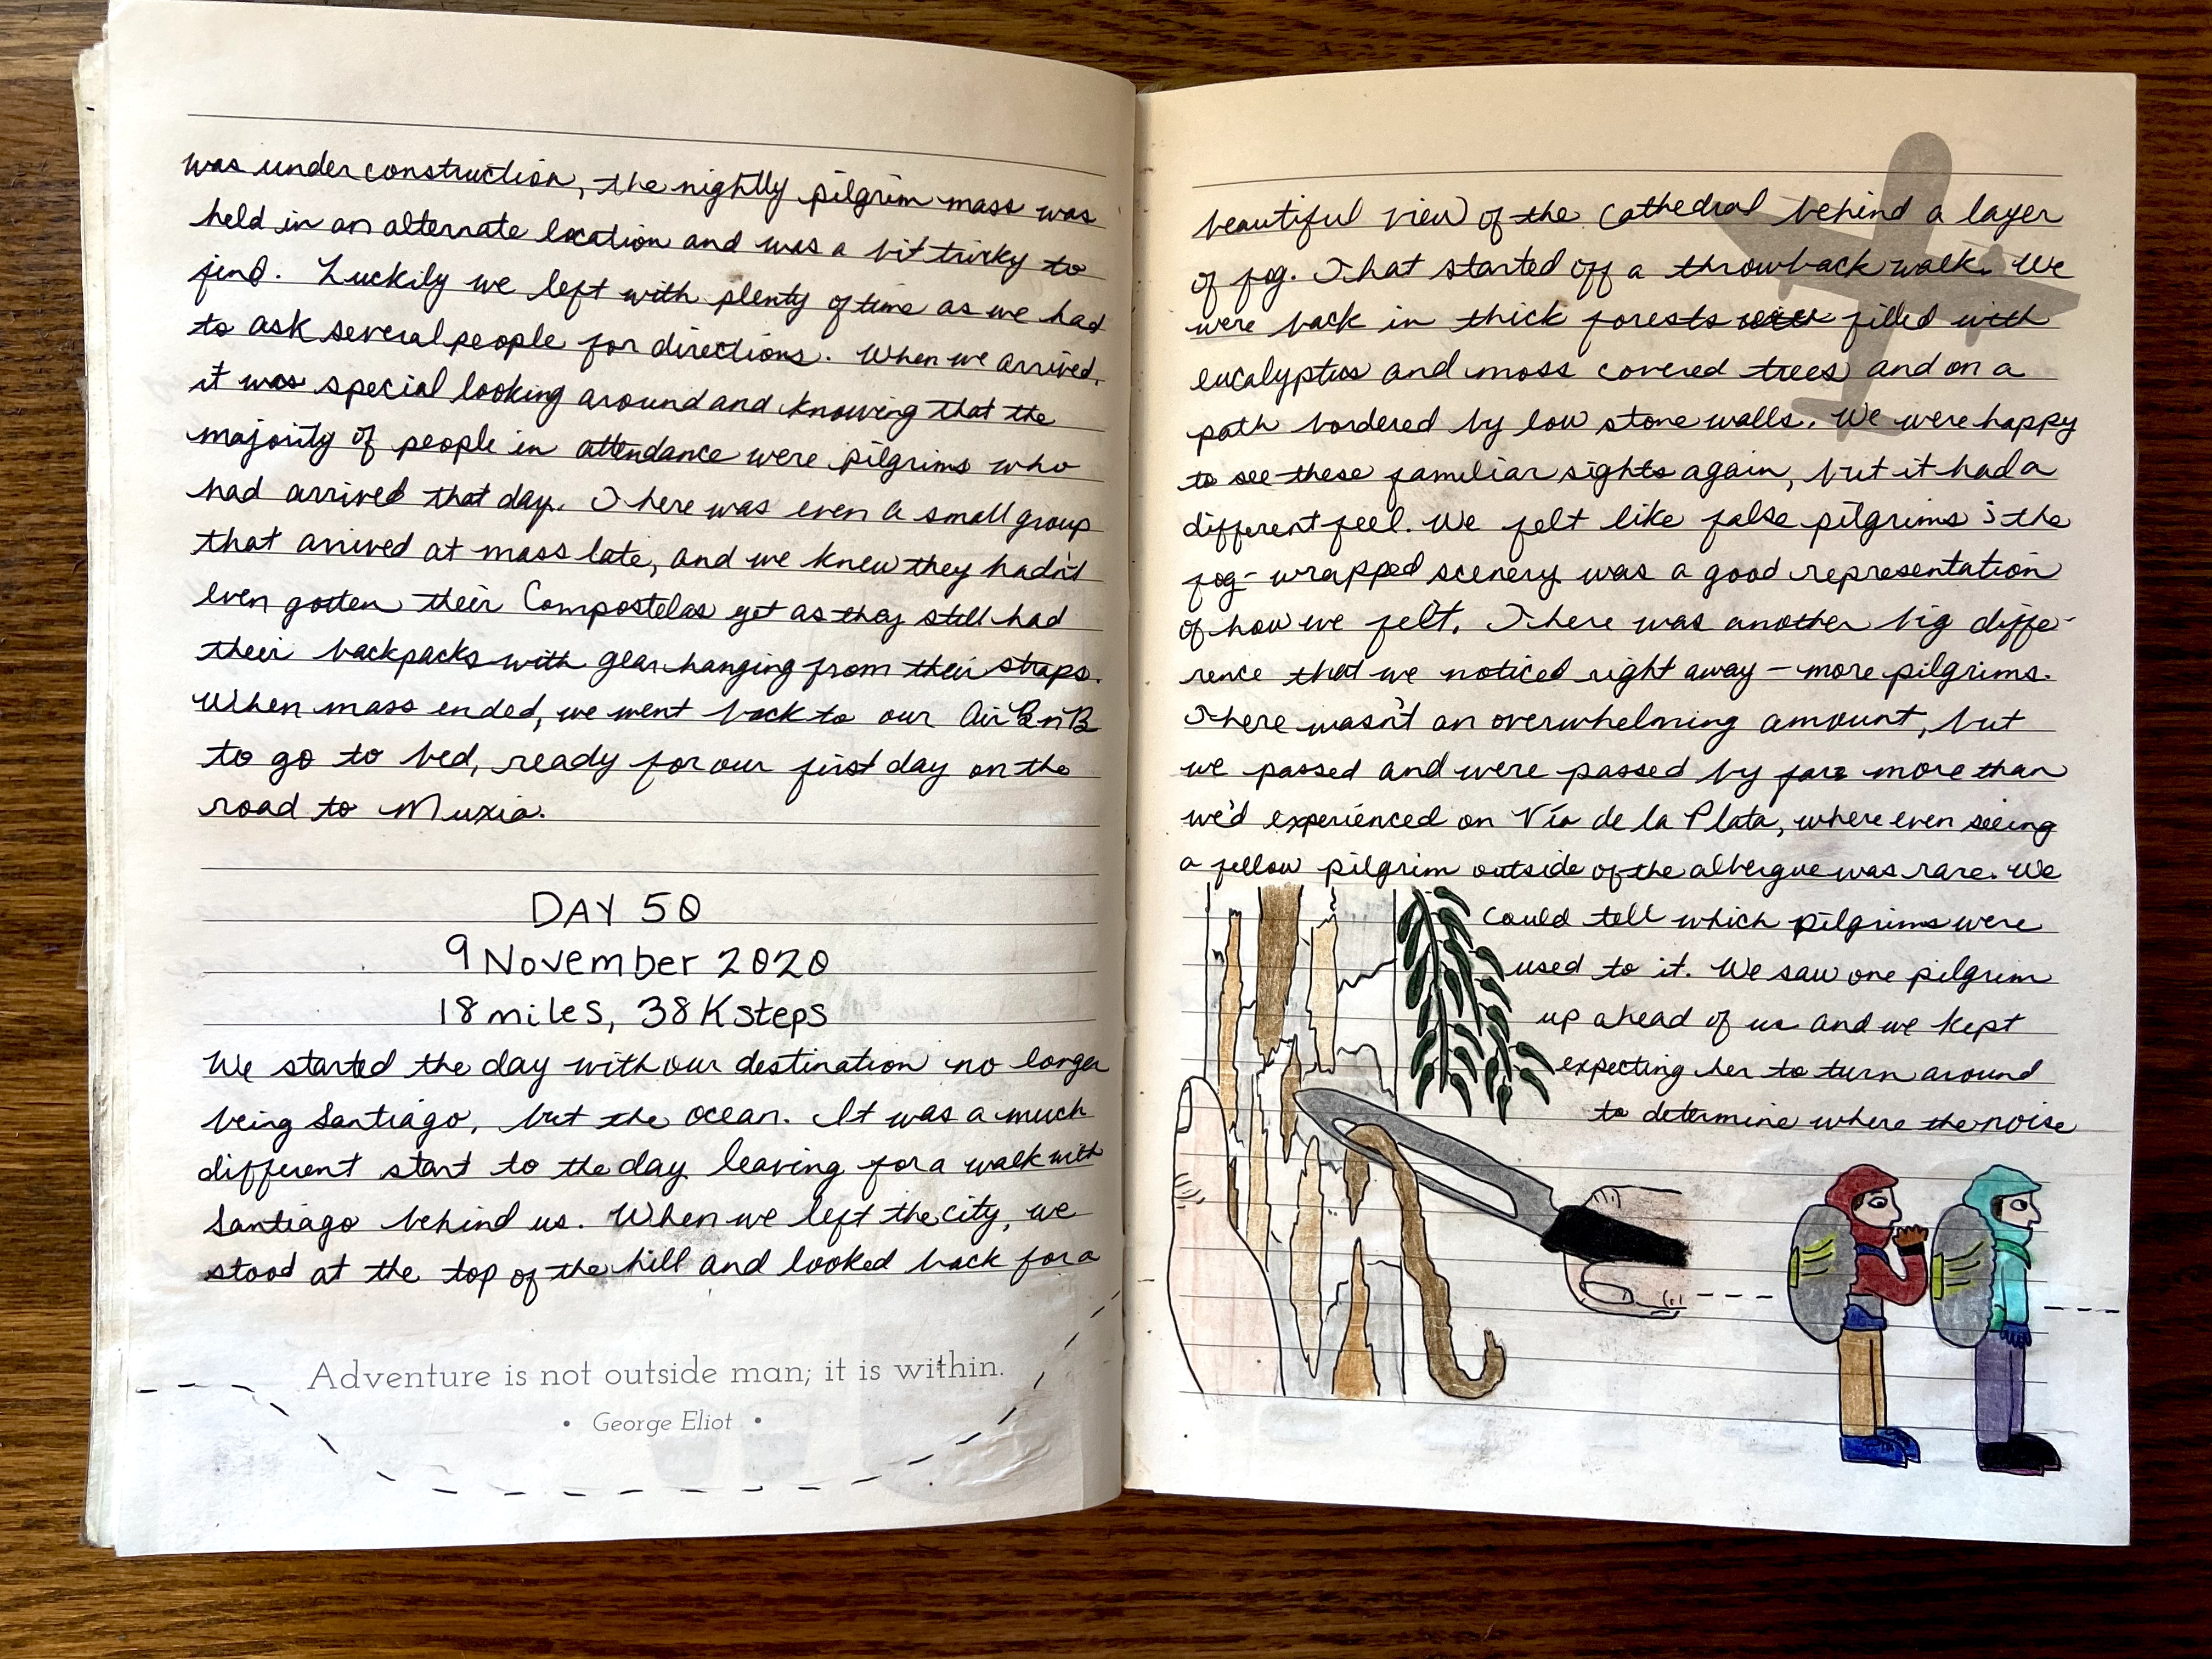 was under construction, the nightly pilgrim mass was
held in an alternate location and was a bit tricky to
find. Luckily we left with plenty of time as we had
to ask several people for directions. When we arrived,
it was special looking around and knowing that the
majority of people in attendance were pilgrims who
had arrived that day. There was even a small group
that arrived at mass late, and we knew they hadn't
even gotten their Compostelas yet as they still had
their backpacks with gear hanging from their straps.
When mass ended, we went back to our AirBnB
to go to bed, ready for our first day on the
road to Muxia.
DAY 50
9 November 2020
18 miles, 38K steps
We started the day with our destination no longer
being Santiago, but the ocean. It was a much
different start to the day leaving for a walk with
Santiago behind us. When we left the city, we
stood at the top of the hill and looked back for a
Adventure is not outside man; it is within.
• George Eliot •
beautiful view of the Cathedral behind a layer
of fog. That started off a throwback walk. We
were back in thick forests filled with
eucalyptus and moss covered trees and on a
path bordered by low stone walls. We were happy
to see these familiar sights again, but it had a
different feel. We felt like false pilgrims; the
fog-wrapped scenery was a good representation
of how we felt. There was another big diffe-
rence that we noticed right away – more pilgrims.
There wasn't an overwhelming amount, but
we passed and were passed by far more than
we'd experienced on Vía de la Plata, where even seeing
a fellow pilgrim outside of the albergue was rare. We
could tell which pilgrims were
used to it. We saw one pilgrim
up ahead of us and we kept
expecting her to turn around
to determine where the noise